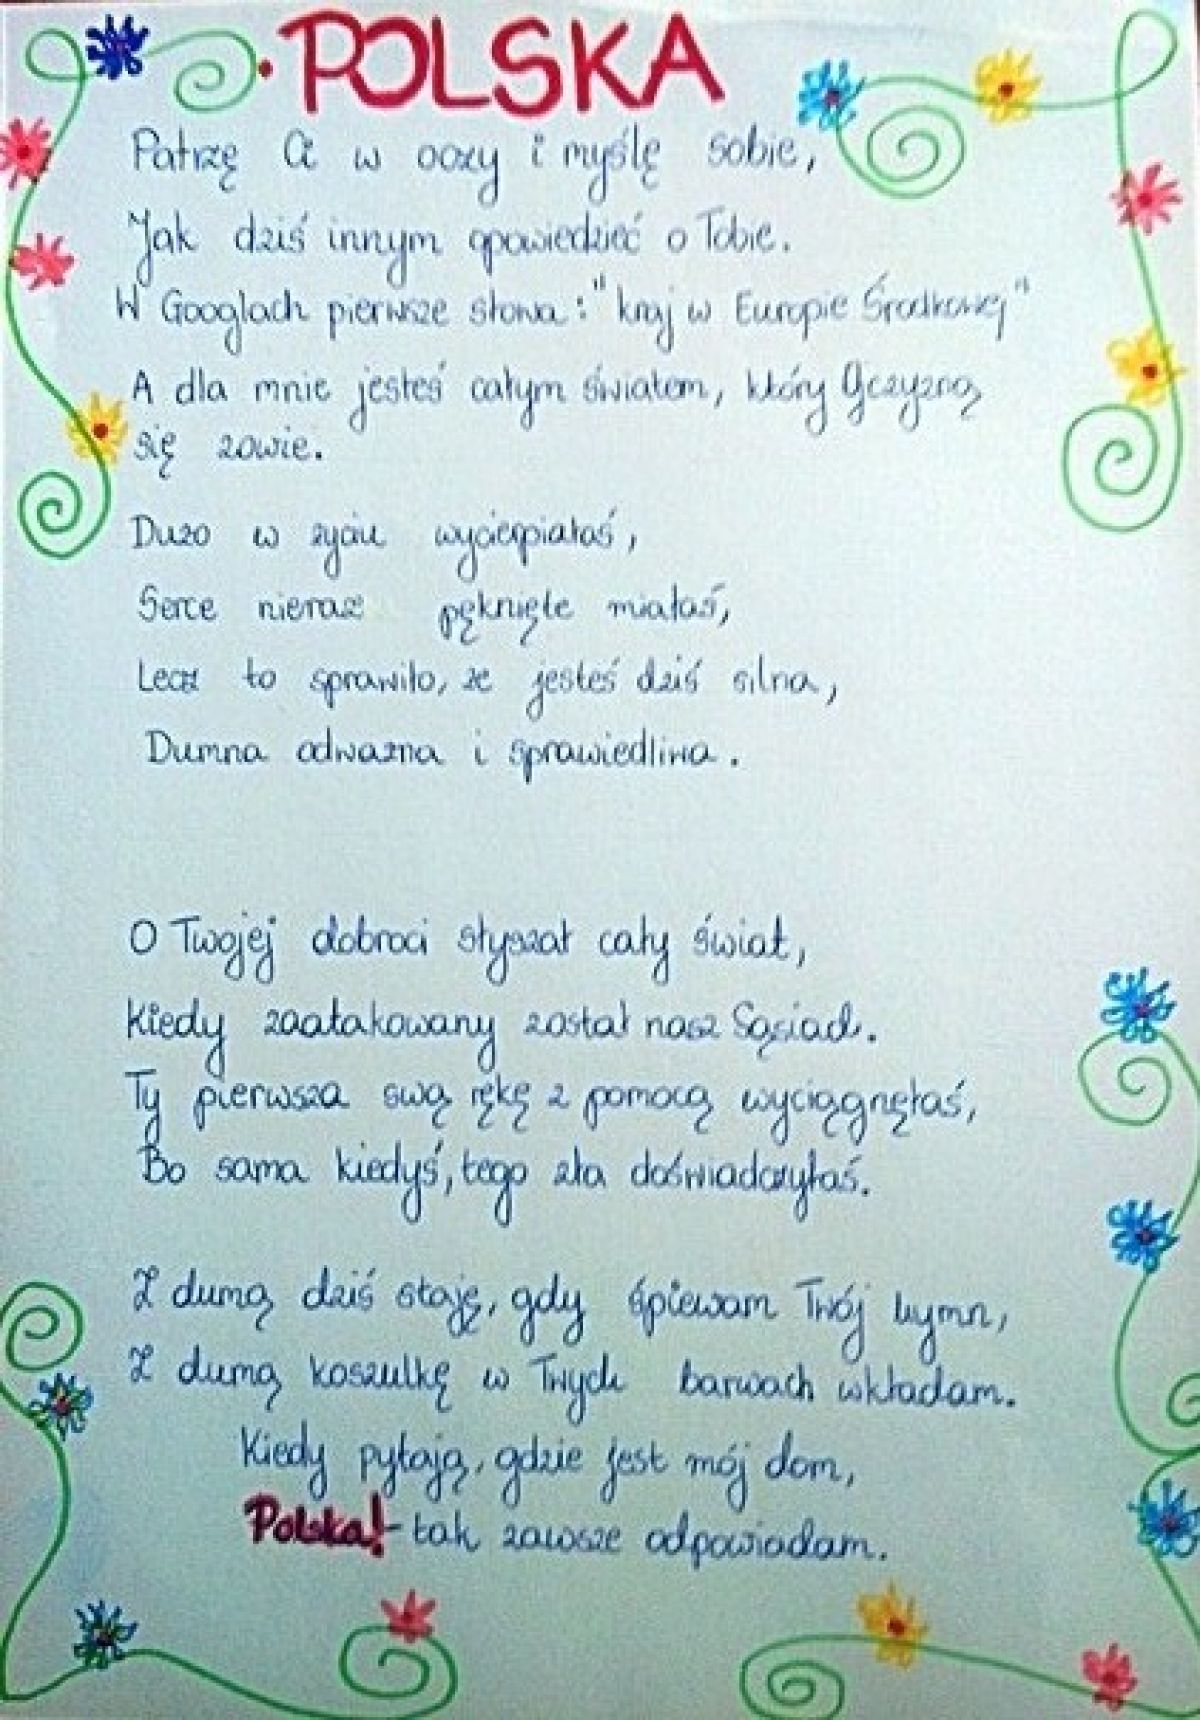 POLSKA
Patrzę Ci w oczy i myślę sobie,
Jak dziś innym opowiedzieć o Tobie.
W Googlach pierwsze słowa: "kraj w Europie Środkowej"
A dla mnie jesteś całym światem, który Ojczyzną
się zowie.
Dużo w życiu wycierpiałaś,
Serce nieraz pęknięte miałaś,
Lecz to sprawiło, że jesteś dziś silna,
Dumna odważna i sprawiedliwa.
O Twojej dobroci słyszał cały świat,
Kiedy zaatakowany został nasz Sąsiad.
Ty pierwsza swą rękę z pomocą wyciągnęłaś,
Bo sama kiedyś, tego zła doświadczyłaś.
Z dumą dziś staję, gdy śpiewam Twój hymn,
Z dumą koszulkę w Twych barwach wkładam.
Kiedy pytają, gdzie jest mój dom,
Polska! - tak zawsze odpowiadam.